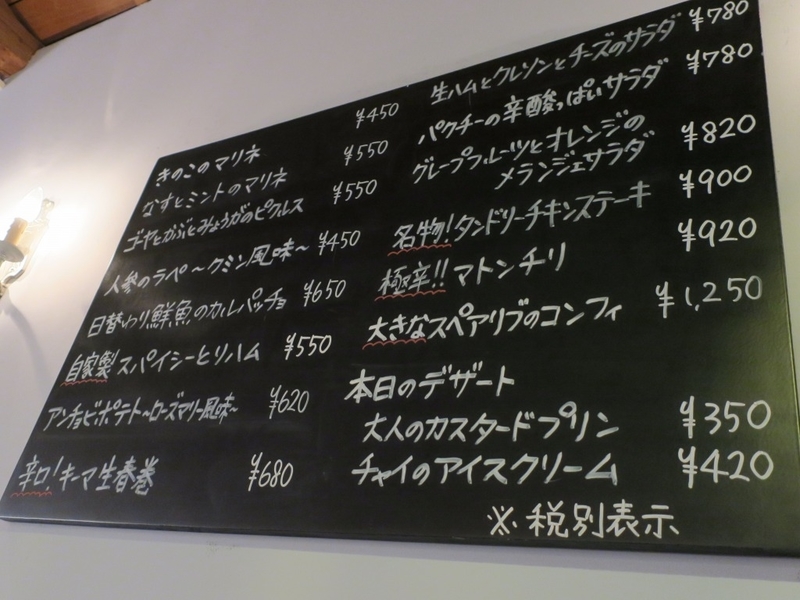 きのこのマリネ ¥450
なすとミントのマリネ ¥550
ゴーヤとかぶとみょうがのピクルス ¥550
人参のラペ〜クミン風味〜 ¥450
日替わり鮮魚のカルパッチョ ¥650
自家製スパイシーとりハム ¥550
アンチョビポテト〜ローズマリー風味〜 ¥620
辛口!キーマ生春巻 ¥680
生ハムとクレソンとチーズのサラダ ¥780
パクチーの辛酸っぱいサラダ ¥780
グレープフルーツとオレンジの
メランジェサラダ ¥820
名物!タンドリーチキンステーキ ¥900
極辛!!マトンチリ ¥920
大きなスペアリブのコンフィ ¥1,250
本日のデザート
大人のカスタードプリン ¥350
チャイのアイスクリーム ¥420
※税別表示